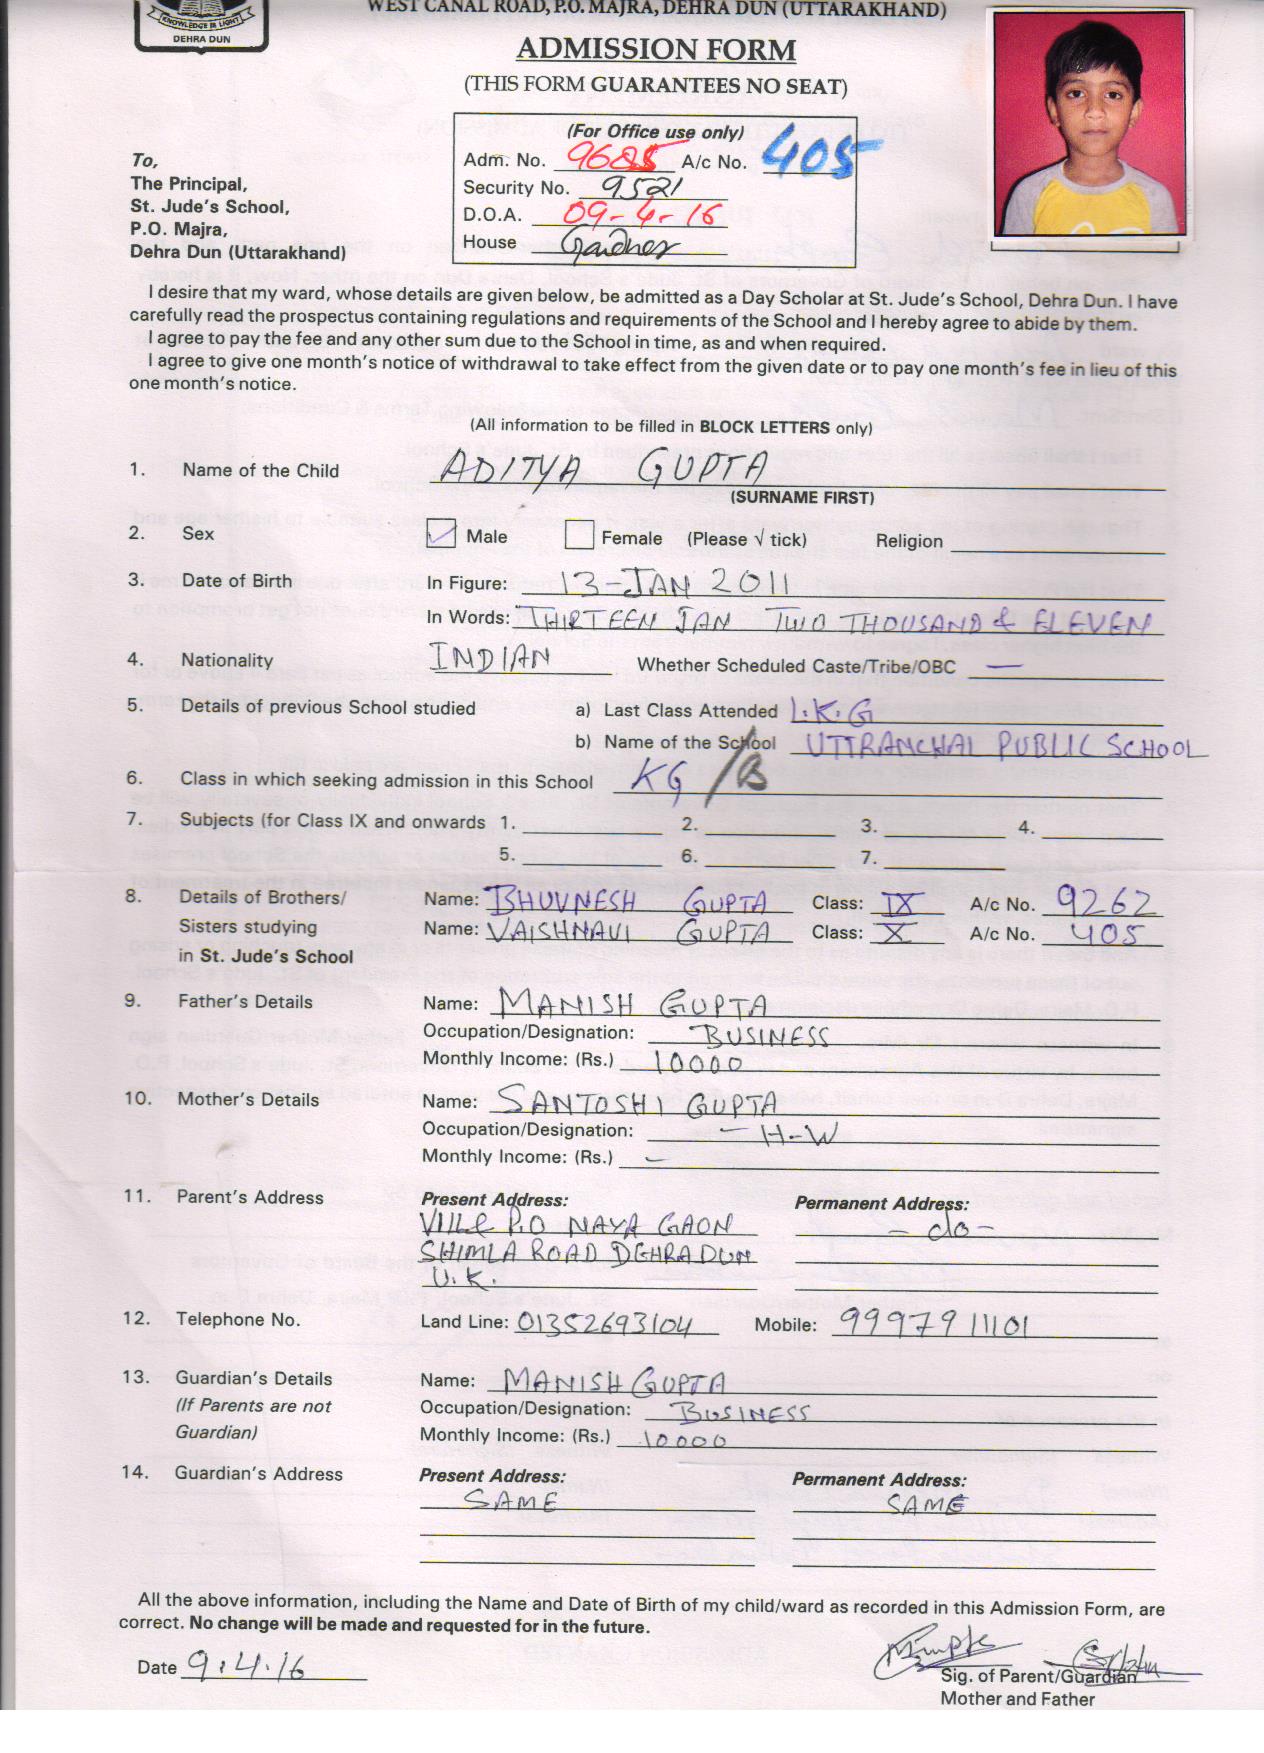 KNOWLEDGE IS LIGHT
DEHRA DUN
WEST CANAL ROAD, P.O. MAJRA, DEHRA DUN (UTTARAKHAND)
ADMISSION FORM
(THIS FORM GUARANTEES NO SEAT)
(For Office use only)
Adm. No. 9685 A/c No. 405
Security No. 9521
D.O.A. 09-4-16
House Gardner
To,
The Principal,
St. Jude's School,
P.O. Majra,
Dehra Dun (Uttarakhand)
I desire that my ward, whose details are given below, be admitted as a Day Scholar at St. Jude's School, Dehra Dun. I have
carefully read the prospectus containing regulations and requirements of the School and I hereby agree to abide by them.
I agree to pay the fee and any other sum due to the School in time, as and when required.
I agree to give one month's notice of withdrawal to take effect from the given date or to pay one month's fee in lieu of this
one month's notice.
(All information to be filled in BLOCK LETTERS only)
1. Name of the Child ADITYA GUPTA
(SURNAME FIRST)
2. Sex Male Female (Please √ tick) Religion
3. Date of Birth In Figure: 13-JAN 2011
In Words: THIRTEEN JAN TWO THOUSAND & ELEVEN
4. Nationality INDIAN Whether Scheduled Caste/Tribe/OBC —
5. Details of previous School studied a) Last Class Attended L.K.G
b) Name of the School UTTRANCHAL PUBLIC SCHOOL
6. Class in which seeking admission in this School KG/B
7. Subjects (for Class IX and onwards 1. 2. 3. 4.
5. 6. 7.
8. Details of Brothers/ Name: BHUVNESH GUPTA Class: IX A/c No. 9262
Sisters studying Name: VAISHNAVI GUPTA Class: X A/c No. 405
in St. Jude's School
9. Father's Details Name: MANISH GUPTA
Occupation/Designation: BUSINESS
Monthly Income: (Rs.) 10000
10. Mother's Details Name: SANTOSHI GUPTA
Occupation/Designation: — H-W
Monthly Income: (Rs.) —
11. Parent's Address Present Address: Permanent Address:
VILL& P.O NAYA GAON - do -
SHIMLA ROAD DEHRADUN
U.K.
12. Telephone No. Land Line: 01352693104 Mobile: 9997911101
13. Guardian's Details Name: MANISH GUPTA
(If Parents are not Occupation/Designation: BUSINESS
Guardian) Monthly Income: (Rs.) 10000
14. Guardian's Address Present Address: Permanent Address:
SAME SAME
All the above information, including the Name and Date of Birth of my child/ward as recorded in this Admission Form, are
correct. No change will be made and requested for in the future.
Date 9.4.16
Sig. of Parent/Guardian
Mother and Father